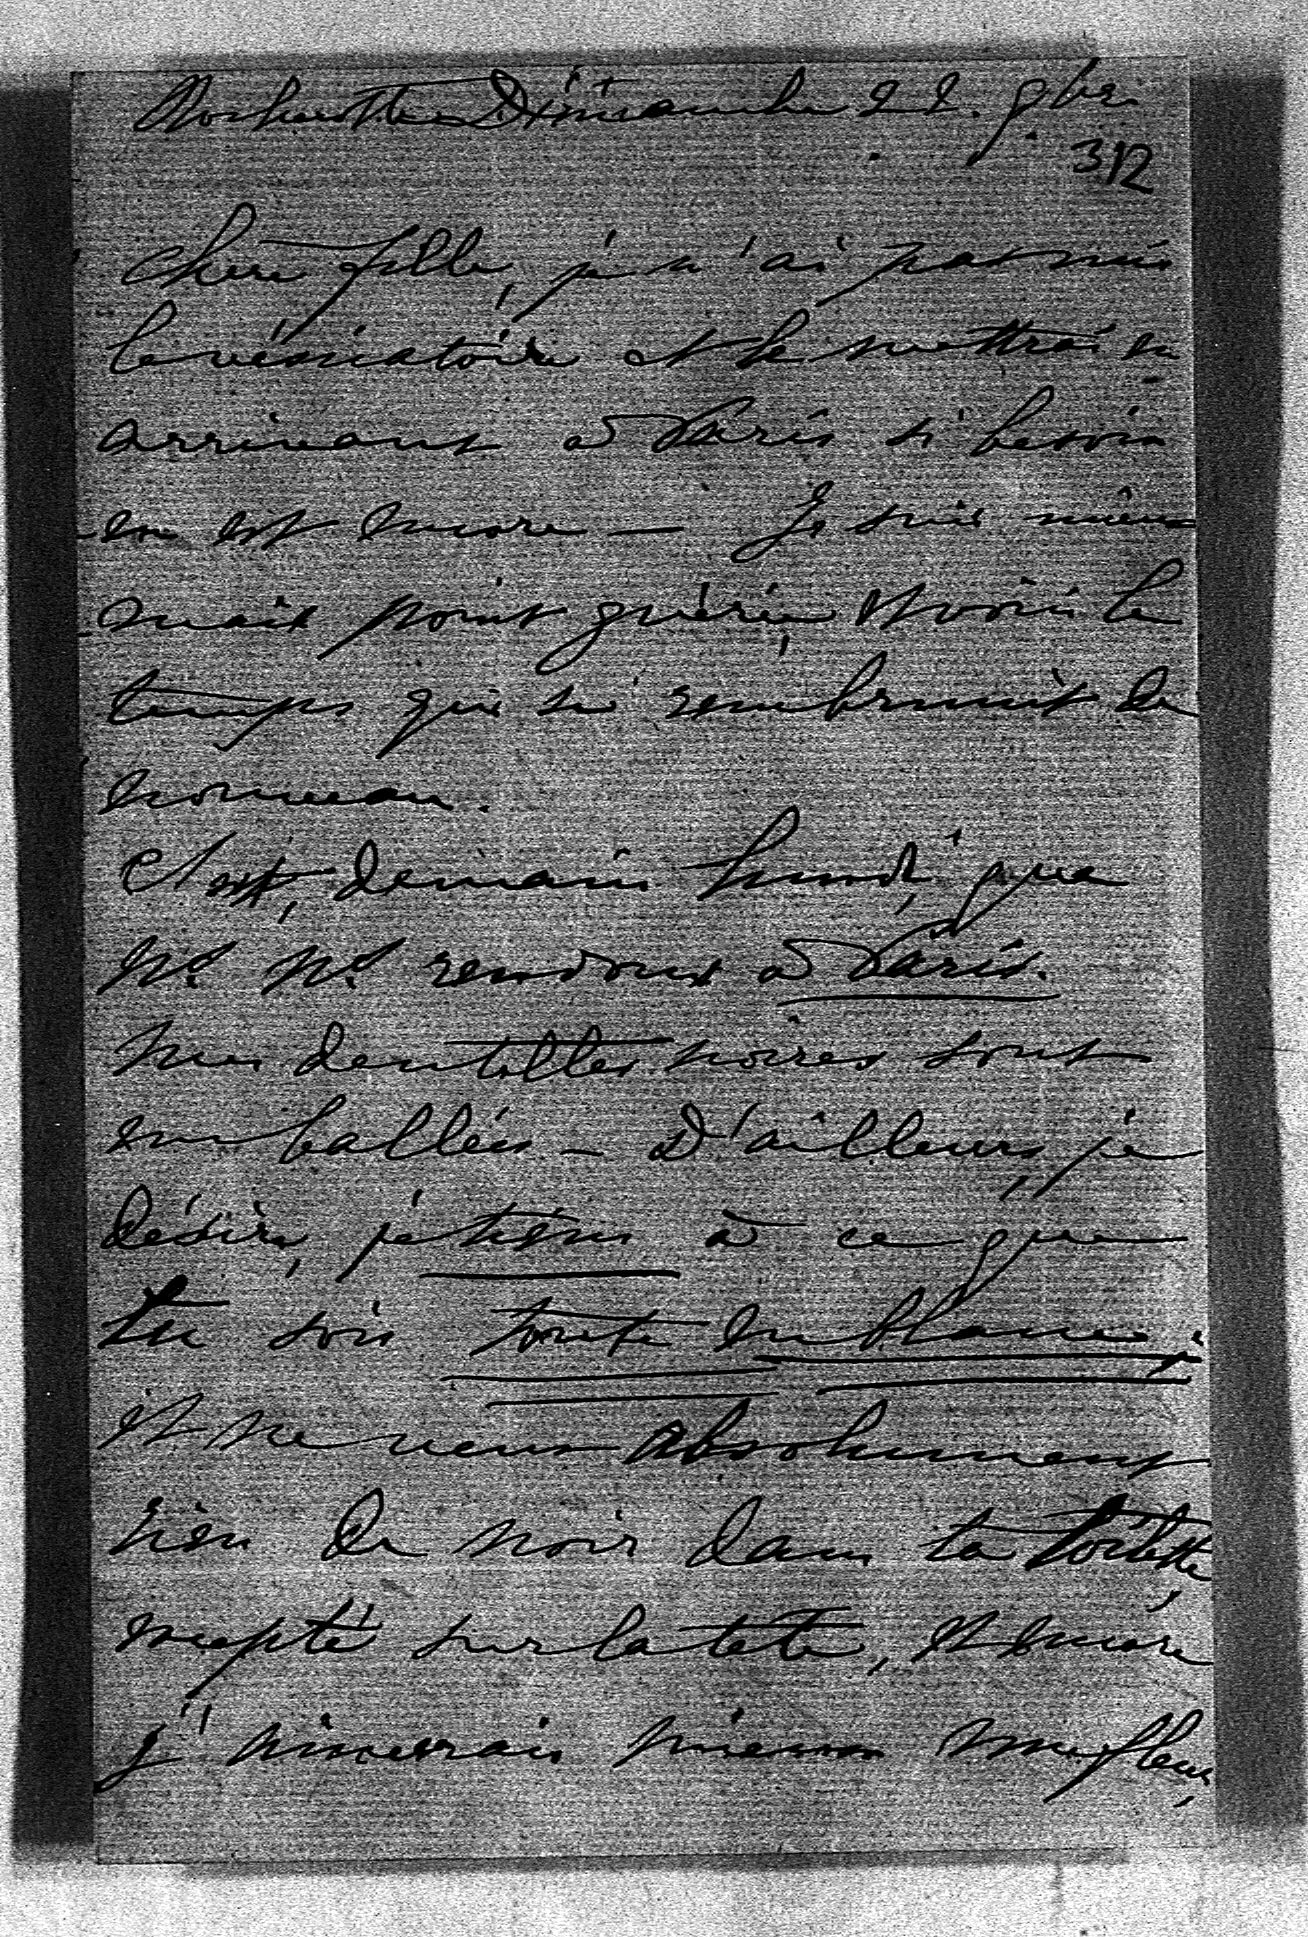 Rochecotte Dimanche 22. 9bre
312
Chère fille, je n'ai pas mis
le vésicatoire et le mettrai en
arrivant à Paris si besoin
en est encore — Je suis mieux
mais point guérie, et voici le
temps qui se rembrunit de
nouveau.
C'est, demain lundi, que
ns. ns. rendons à Paris.
Mes dentelles noires sont
emballées — D'ailleurs, je
désire, je tiens à ce que
tu sois toute en blanc,
et ne veux absolument
rien de noir dans ta toilette,
excepté sur la tête, et encore
j'aimerais mieux une fleur,